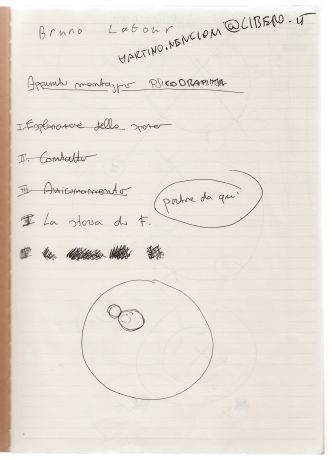 Bruno Latour
MARTINO.NENCIONI@LIBERO.IT
Appunti montaggio PSICODRAMMA
I. Esplorazione dello spazio
II. Contatto
III Avvicinamento
partire da qui
I La storia di F.